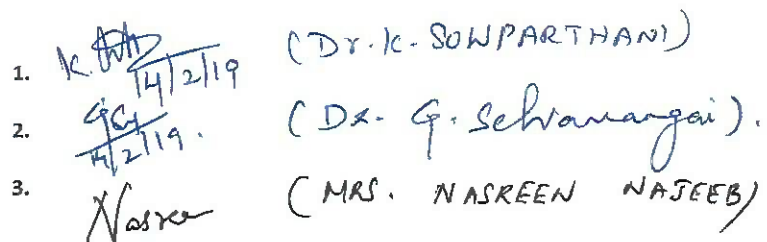 1. K. 14/2/19 (Dr. K. SOWPARTHANI)
2. 14/2/19. (Dr. G. Selvamangai).
3. Nasree (MRS. NASREEN NAJEEB)